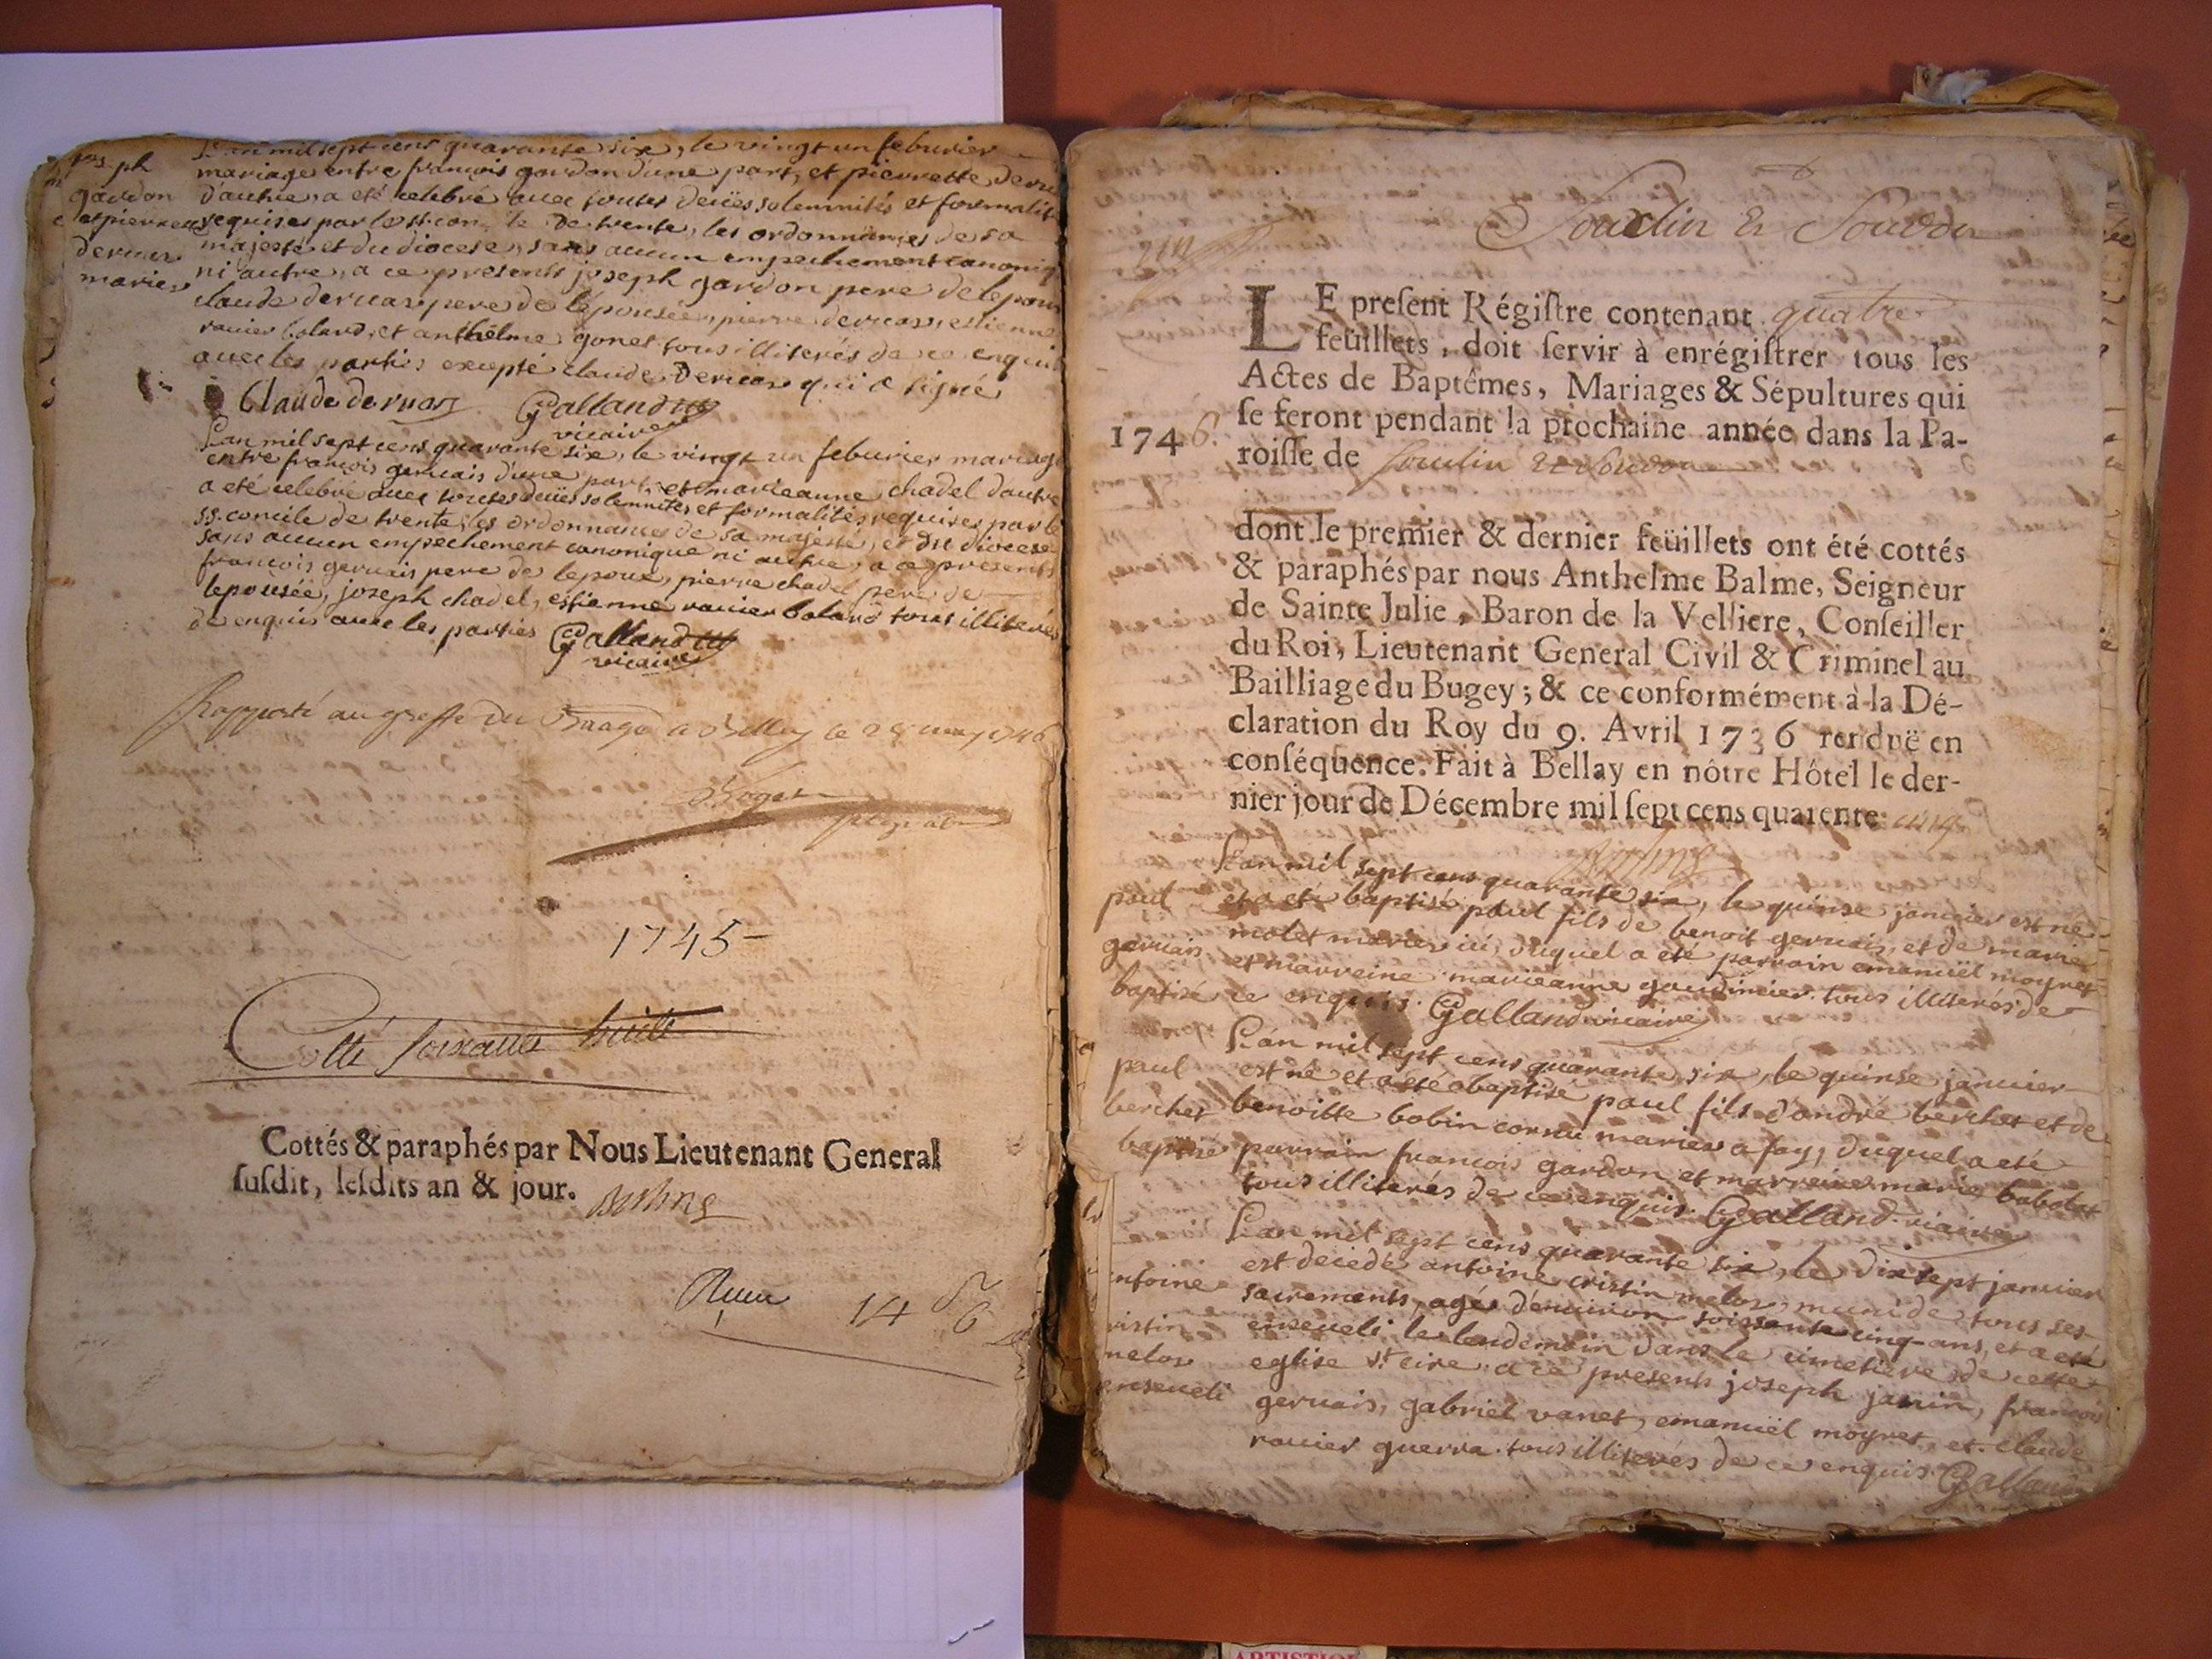 L'an mil sept cens quarante six, le vingt un feburier
mariage entre françois gardon d'une part, et pierrette
d'autre, a eté celebré avec toutes deües solemnités et formalit
requises par le st. con de trente, les ordonnances de sa
majesté et du diocese, sans aucun empechement canoniq
ni autre, a ce presents joseph gardon pere de lepoux
claude deruaz pere de l'epousée, pierre deruaz, estienne
rauier bolard, et anthelme gonet tous illiterés de ce enquis
auec les parties excepté claude deruaz qui a signé
ph
gardon
et pierrett
deruaz
mariés
Claude deruaz Galland
vicaire
L'an mil sept cens quarante six, le vingt un feburier mariage
entre françois geruais d'une part, et marieanne chadel d'autre
a eté celebré auec toutes deües solemnités et formalités requises par le
ss. concile de trente, les ordonnances de sa majesté, et du diocese
sans aucun empechement canonique ni autre, a ce presents
francois geruais pere de lepoux, pierre chadel pere de
lepousée, joseph chadel, estienne rauier bolard tous illiterés
de enquis auec les parties Galland
vicaire
Rapporté au greffe du Baage a Belley le 28 may 1746
Roget
1745
Cotté soixante huit
Cottés & paraphés par Nous Lieutenant General
susdit, lesdits an & jour. Balme
14 6
Souclin Et Soudon
LE present Régistre contenant quatre
feüillets, doit servir à enrégistrer tous les
Actes de Baptêmes, Mariages & Sépultures qui
se feront pendant la prochaine année dans la Pa-
1746.
roisse de souclin Et Soudon
dont le premier & dernier feüillets ont été cottés
& paraphés par nous Anthelme Balme, Seigneur
de Sainte Julie, Baron de la Velliere, Conseiller
du Roi, Lieutenant General Civil & Criminel au
Bailliage du Bugey; & ce conformément à la Dé-
claration du Roy du 9. Avril 1736 renduë en
conséquence. Fait à Bellay en nôtre Hôtel le der-
nier jour de Décembre mil sept cens quarente cinq
Balme
paul
geruais
baptisé
L'an mil sept cens quarante six, le quinse januier est né
et a eté baptisé paul fils de benoit geruais, et de marie
molet mariés ici, duquel a eté parrain emanuël moyret
et marreine marieanne gaudineier tous illiterés de
ce enquis. Galland vicaire
paul
berchet
baptisé
L'an mil sept cens quarante six, le quinse januier
est né et a eté baptisé paul fils d'andré berchet et de
benoitte bobin cornu mariés a fay, duquel a eté
parrain francois gardon et marreine marie babolat
tous illiterés de ce enquis. Galland vicaire
ntoine
ristin
melos
enseueli
L'an mil sept cens quarante six, le dix sept januier
est decedé antoine cristin melos, muni de tous ses
sacrements, agée d'enuiron soissante cinq ans, et a eté
enseueli le lendemain dans le cimetiere de cette
eglise st. cire. a ce presents joseph janin, francois
geruais, gabriel vanet, emanuël moyret, et claude
rauier guerra tous illiterés de ce enquis. Galland
ARTISTIQU